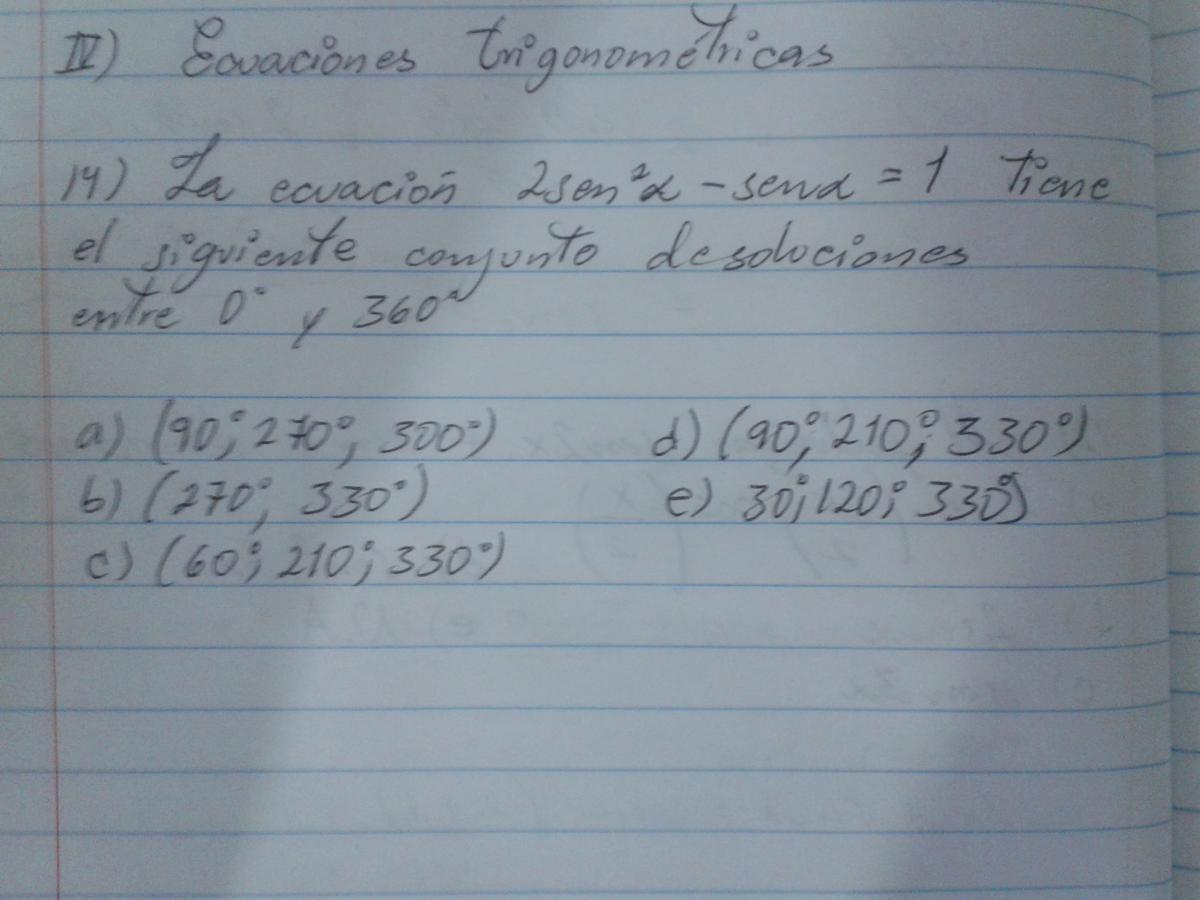 IV) Ecuaciones trigonométricas
14) La ecuación 2sen²α - senα = 1 tiene
el siguiente conjunto de soluciones
entre 0° y 360°
a) (90°; 270°, 300°)
d) (90°; 210°; 330°)
b) (270°; 330°)
e) 30°; 120°; 330°)
c) (60°; 210°; 330°)